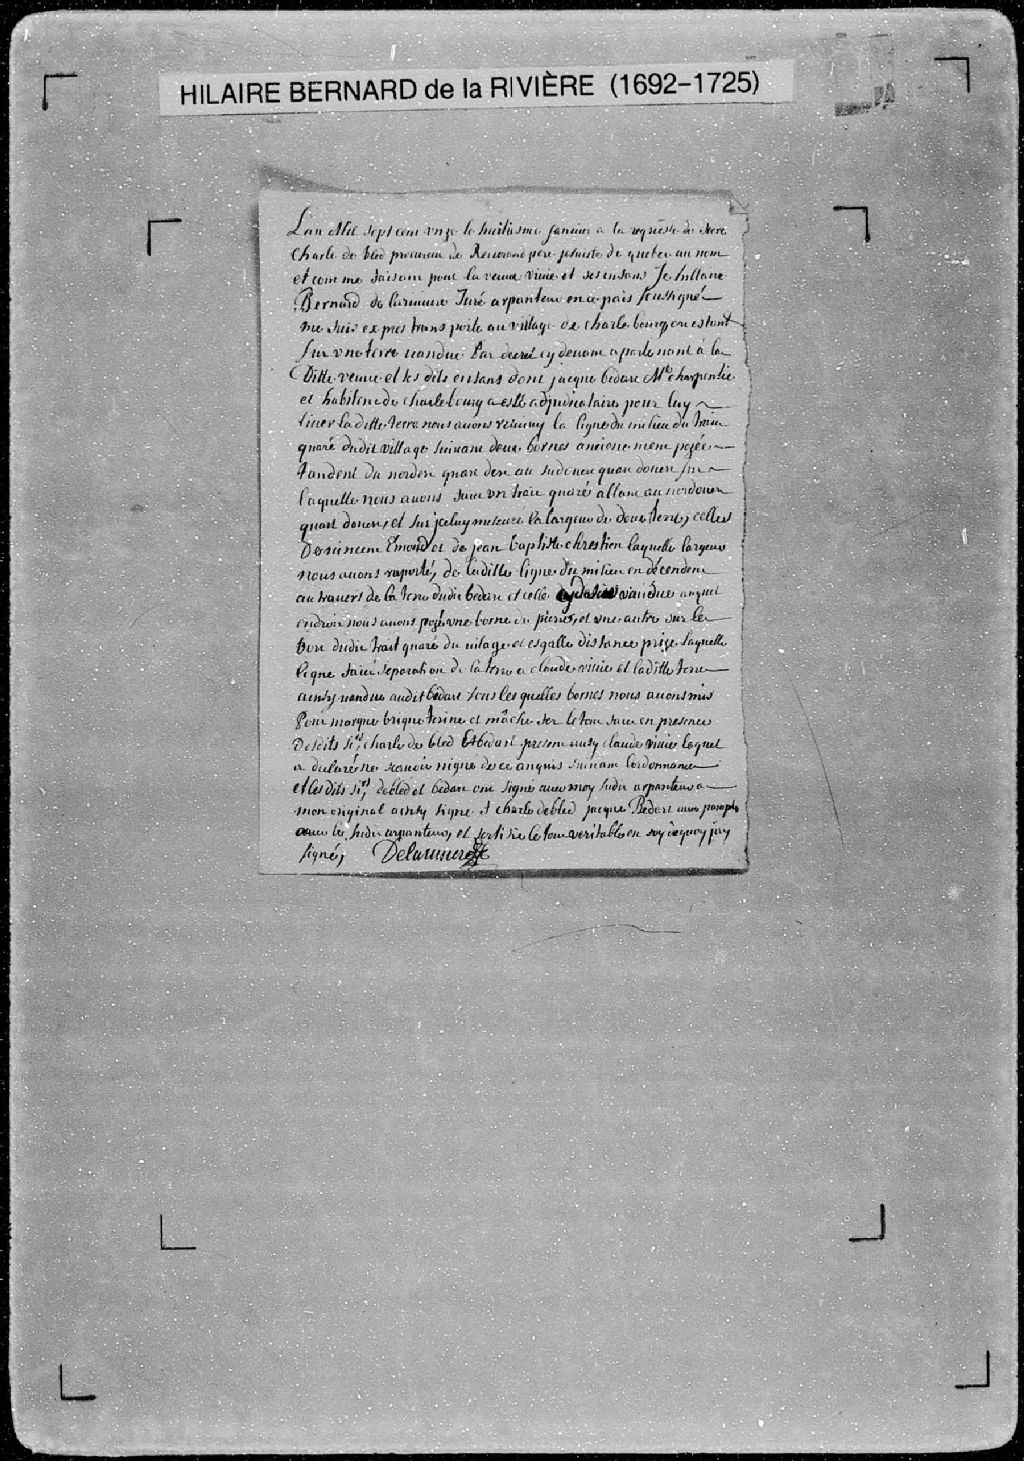 HILAIRE BERNARD de la RIVIÈRE (1692-1725)
L'an Mil sept cent unze le huitiesme Janvier a la requeste de frere
Charle de bled procureur de Reverand pere jesuiste de quebec au nom
et comme faisam pour la veuve vivie et ses enfans Je hillaire
Bernard de lariviere Juré arpanteur en ce païs soussigné
me suis expres transporté au village de charlebourg, ou estant
sur une terre vandue Par decret cy devam apartenant à la
Ditte veuve et les dits enfans dont jacque bedare Mtre charpentie
et habitan de charlebourg a esté adjudicataire pour luy
tirer la ditte terre nous avons la ligne du milieu du train
quaré dudit village suivam deux bornes anciene mem pozée
tandent du nordest quar dest au sudouest quar douest sur
laquelle nous avons faict un trait quaré allam au nordouest
quart douest, et sur jceluy mesuré la largeur de deux terres, celles
Emond et de jean baptiste chrestien laquelle largeur
nous avons raporté, de laditte ligne du milieu en décendem
au travers de la terre dudit bedare et celle vandue auquel
endroit nous avons pozé une borne de pierre, et une autre sur le
bou dudit trait quaré du vilage et esgalle distance prize laquelle
ligne faict separation de la terre a claude vivie et laditte terre
ainsy vandue audit bedare sous les quelles bornes nous avons mis
Pour marque brique terine et mâche fer le tou faict en presence
Desdits srs, charle de bled et bedare presen ausy claude vivie lequel
a declaré ne scavoir signé de ce anquis suivam lordonnance
et les dits srs, debled et bedare ont signé avec moy dit arpanteur a
mon original ainsy signe f charle debled jacque Bedare avec paraphe
avec le dit arpanteur, et sertifie le tou veritable en foy dequoy jay
signé, Delariviere